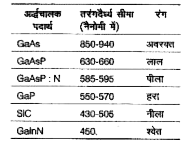 अर्द्धचालक पदार्थ तरंगदैर्ध्य सीमा (नैनोमी में) रंग
GaAs 850-940 अवरक्त
GaAsP 630-660 लाल
GaAsP : N 585-595 पीला
GaP 550-570 हरा
SiC 430-505 नीला
GaInN 450. श्वेत